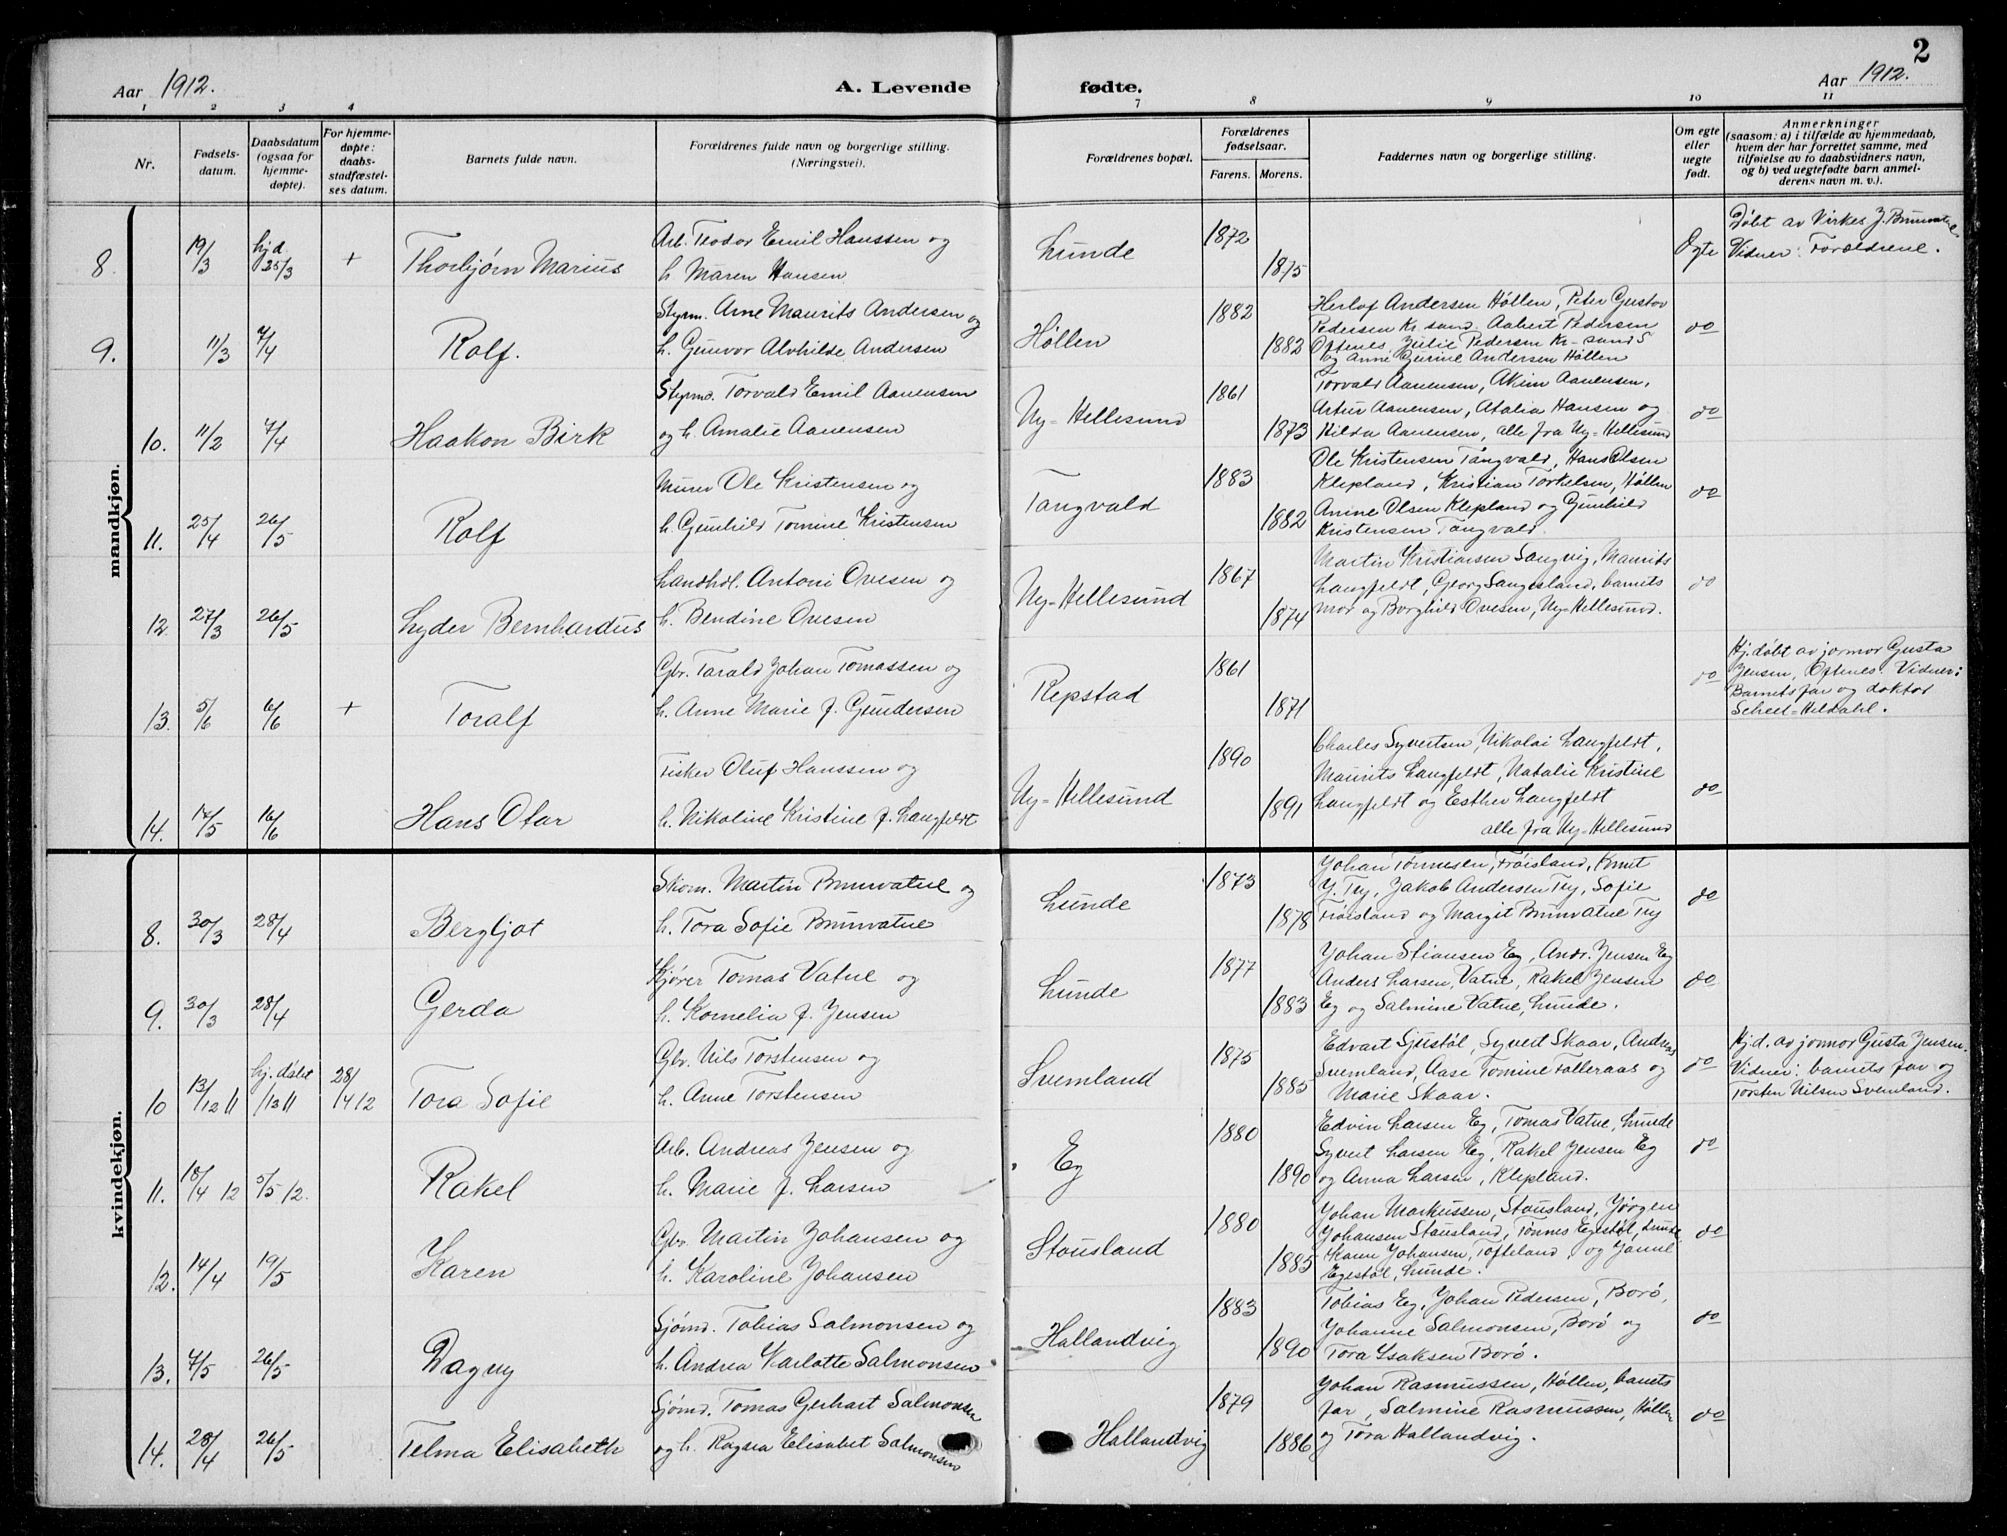 2
Aar 1912.
A. Levende fødte.
Aar 1912.
1 2 3 4 7 8 9 10 11
Nr.
Fødsels-
datum.
Daabsdatum
(ogsaa for
hjemme-
døpte).
For hjemme-
døpte:
daabs-
stadfæstel-
ses datum.
Barnets fulde navn.
Forældrenes fulde navn og borgerlige stilling.
(Næringsvei).
Forældrenes bopæl.
Forældrenes
fødselsaar.
Farens. Morens.
Faddernes navn og borgerlige stilling.
Om egte
eller
uegte
født.
Anmerkninger
(saasom: a) i tilfælde av hjemmedaab,
hvem der har forrettet samme, med
tilføielse av to daabsvidners navn,
og b) ved uegtefødte barn anmel-
derens navn m. v.).
mandkjøn.
8. 19/3 hj.d. 25/3 + Thorbjørn Marius
Arb. Teodor Emil Hanssen og
h. Maren Hansen
Lunde 1872 1875 Egte
Døbt av Virkes J. Brunvatne
Vidner: Forældrene.
9. 11/3 7/4 Rolf.
Styrm. Arne Maurits Andersen og
h. Gunvor Alvhilde Andersen
Høllen 1882 1882
Herlof Andersen Høllen, Peter Gustav
Pedersen Kr. sand. Aabert Pedersen
Oftenes, Julie Pedersen Kr-sand S
og Anne Gurine Andersen Høllen
do
10. 11/2 7/4 Haakon Birk
Styrmd. Torvald Emil Aanensen
og h. Amalie Aanensen
Ny-Hellesund 1861 1873
Torvald Aanensen, Akim Aanensen,
Artur Aanensen, Atalia Hansen og
Hilda Aanensen, alle fra Ny-Hellesund
do
11. 25/4 26/5 Rolf
Murer Ole Kristensen og
h. Gunhild Tomine Kristensen
Tangvald 1883 1882
Ole Kristensen Tangvald, Hans Olsen
Klepland, Kristian Torkelsen, Høllen
Anine Olsen Klepland og Gunhild
Kristensen Tangvald.
do
12. 27/3 26/5 Lyder Bernhardus
Landhdl. Antoni Ovesen og
h. Bendine Ovesen
Ny-Hellesund 1867 1874
Martin Kristiansen Sangvig, Maurits
Langfeldt, Georg Sangesland, barnets
mor og Borghild Ovesen, Ny-Hellesund.
do
13. 5/6 6/6 + Toralf
Gbr. Tarald Johan Tomassen og
h. Anne Marie f. Gundersen
Repstad 1861 1871 do
Hj. døbt av jormor Gusta
Jensen, Oftenes. Vidner:
Barnets far og doktor
Scheel-Hildahl.
14. 12/5 16/6 Hans Otar
Fisker Oluf Hanssen og
h. Nikoline Kristine f. Langfeldt
Ny-Hellesund 1890 1891
Charles Syvertsen, Nikolai Langfeldt,
Maurits Langfeldt, Natalie Kristine
Langfeldt og Esther Langfeldt
alle fra Ny-Hellesund
do
kvindekjøn.
8. 30/3 28/4 Bergljot
Skom. Martin Brunvatne og
h. Tora Sofie Brunvatne
Lunde 1873 1878
Johan Tønnesen, Frøisland, Knut
J. Try, Jakob Andersen Try, Sofie
Frøisland og Margit Brunvatne Try
do
9. 30/3 28/4 Gerda
Kjører Tomas Vatne og
h. Kornelia f. Jensen
Lunde 1877 1883
Johan Stiansen Eg, Andr. Jensen Eg
Anders Larsen, Vatne, Rakel Jensen
Eg og Salmine Vatne, Lunde.
do
10 13/12 11 hj. døbt /12 11 28/4 12 Tora Sofie
Gbr. Nils Torstensen og
h. Anne Torstensen
Svemland 1875 1885
Edvart Sjustøl, Syvert Skaar, Andreas
Svemland, Aase Tomine Følleraas og
Marie Skaar.
do
Hj.d. av jormor Gusta Jensen.
Vidner: barnets far og
Torsten Nilsen Svemland.
11. 18/4 12 5/5 12. Rakel
Arb. Andreas Jensen og
h. Marie f. Larsen
Eg 1880 1890
Edvin Larsen Eg, Tomas Vatne, Lunde
Syvert Larsen Eg, Rakel Jensen Eg
og Anna Larsen, Klepland.
do
12. 14/4 19/5 Karen
Gbr. Martin Johansen og
h. Karoline Johansen
Stausland 1880 1885
Johan Markussen, Stausland, Jørgen
Johansen Stausland, Tønnes Egestøl, Lunde
Kann Johansen, Tofteland og Janne
Egestøl, Lunde.
do
13. 7/5 26/5 Dagny
Sjømd. Tobias Salmonsen og
h. Andrea Karlotte Salmonsen
Hallandvig 1883 1890
Tobias Eg, Johan Pedersen, Borø,
Johanne Salmonsen, Borø og
Tora Isaksen Borø.
do
14. 28/4 26/5 Telma Elisabeth
Sjømd. Tomas Gerhart Salmonsen
og h. Ragna Elisabet Salmonsen
Hallandvig 1879 1886
Johan Rasmussen, Høllen, barnets
far, Salmine Rasmussen, Høllen
og Tora Hallandvig.
do